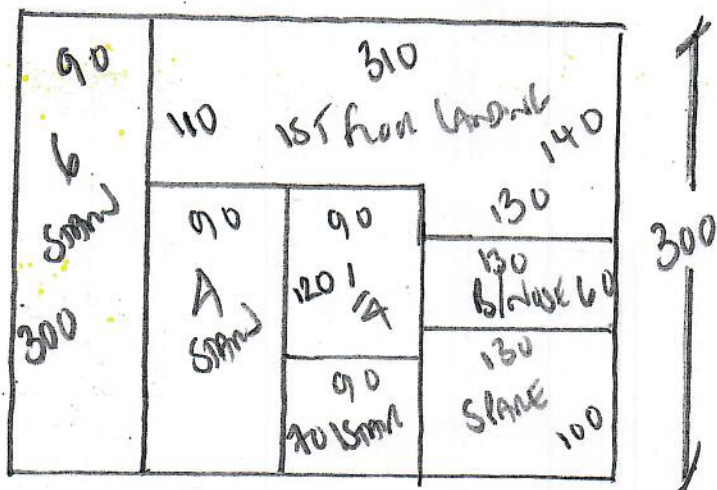 90
6
STAIRS
300
310
110
1ST FLOOR LANDING
140
130
90
STAIRS
90
120
1/4
90
70 1 STAIR
130
B/NOSE 60
130
SPARE
100
300